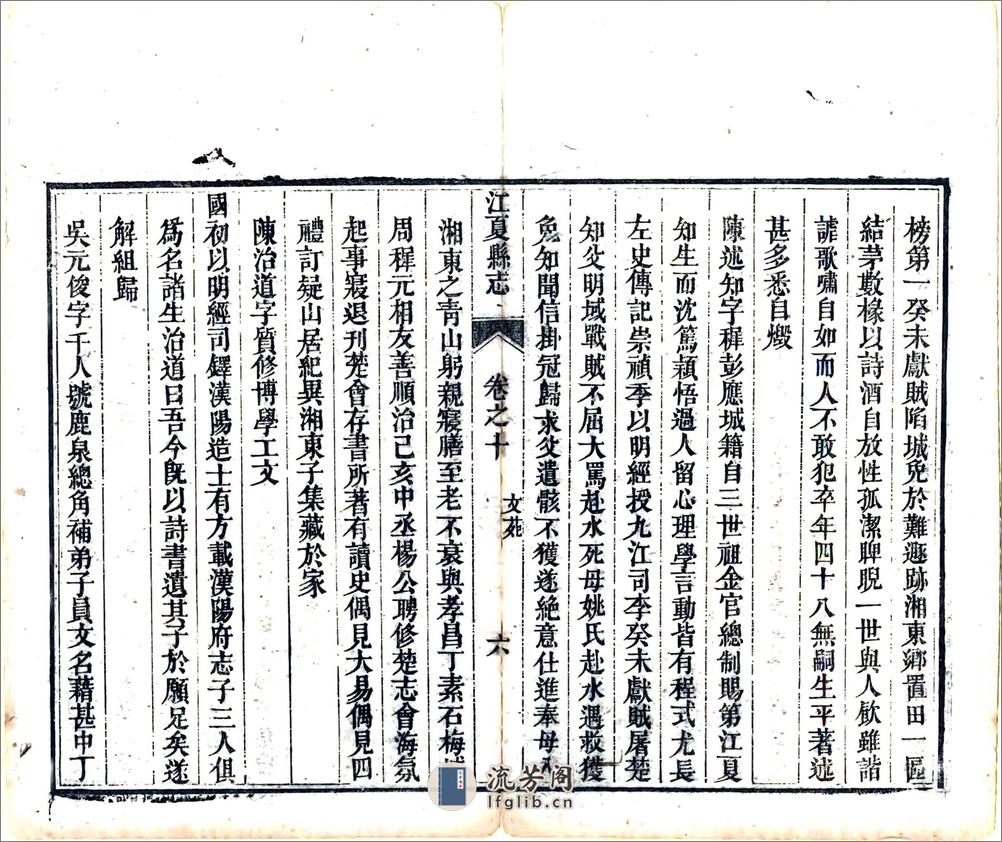 榜第一癸未獻賊陷城免於難遯跡湘東鄉置田一區
結茅數椽以詩酒自放性孤潔睥睨一世與人歡雖詣
謔歌嘯自如而人不敢犯卒年四十八無嗣生平著述
甚多悉自燬
陳述知字穉彭應城籍自三世祖金官總制賜第江夏
知生而沈篤穎悟過人留心理學言動皆有程式尤長
左史傳記崇禎季以明經授九江司李癸未獻賊屠楚
知父明域戰賊不屈大罵赴水死母姚氏赴水遇救獲
免知聞信掛冠歸求父遺骸不獲遂絕意仕進奉母入
江夏縣志
卷之十
文苑
六
湘東之青山躬親寢膳至老不衰與孝昌丁素石梅
周穉元相友善順治己亥中丞楊公聘修楚志會海氛
起事寢退刊楚會存書所著有讀史偶見大易偶見四
禮訂疑山居紀異湘東子集藏於家
陳治道字質修博學工文
國初以明經司鐸漢陽造士有方載漢陽府志子三人俱
爲名諸生治道曰吾今旣以詩書遺其子於願足矣遂
解組歸
吳元俊字千人號鹿泉總角補弟子員文名藉甚中丁
流芳阁
lfglib.cn